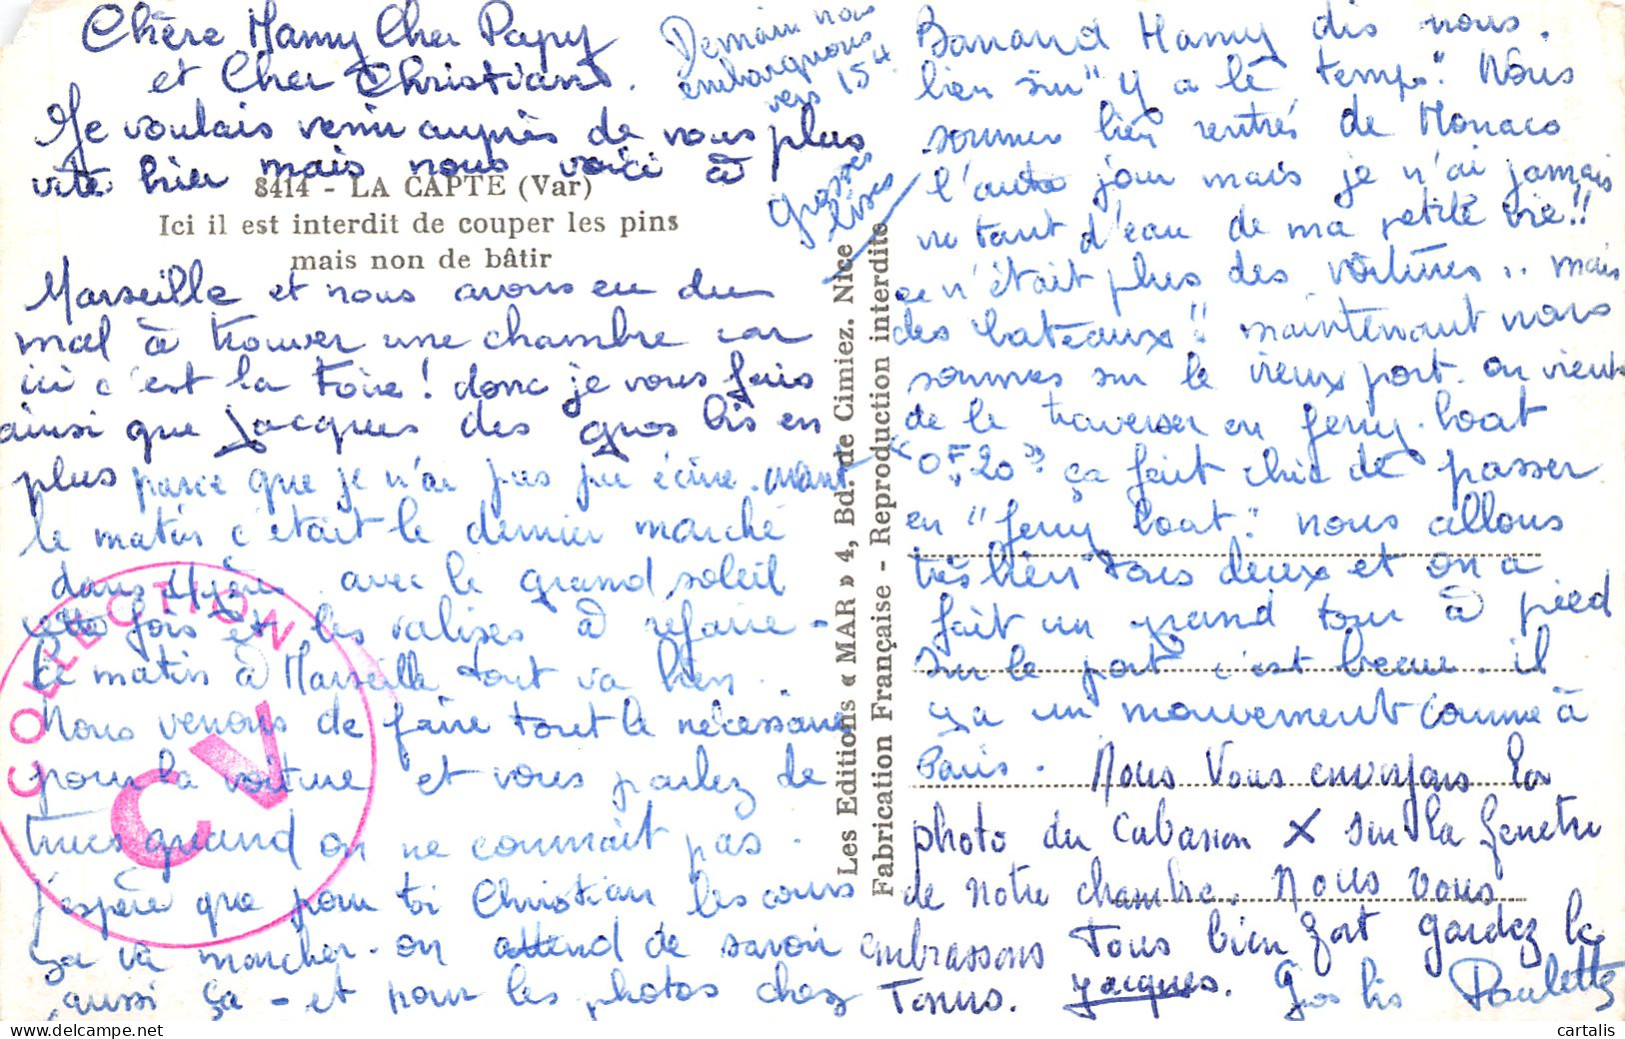 Chère Mamy Cher Papy
et Cher Christian.
Je voulais venir auprès de vous plus
vite hier mais nous voici à
8414 - LA CAPTE (Var)
Ici il est interdit de couper les pins
mais non de bâtir
Marseille et nous avons eu du
mal à trouver une chambre car
ici c'est la Foire! donc je vous fais
ainsi que Jacques des gros bis en
plus parce que je n'ai pas pu écrire avant
le matin c'était le dernier marché
dans Hyères avec le grand soleil
cette fois et les valises à refaire -
Ce matin à Marseille tout va bien.
Nous venons de faire tout le nécessaire
pour la voiture et vous parlez de
trucs quand on ne connaît pas.
J'espère que pour toi Christian les cours
ça va marcher - on attend de savoir
aussi ça - et pour les photos chez
Demain nous
embarquons
vers 15H
grosses
bises
Les Editions « MAR » 4, Bd. de Cimiez. Nice
Fabrication Française - Reproduction interdite
Mamy dis nous.
bien sûr "y a le temps". Nous
sommes bien rentrés de Monaco
l'autre jour mais je n'ai jamais
vu tant d'eau de ma petite vie!!
ce n'était plus des voitures.. mais
des bateaux!! maintenant nous
sommes sur le vieux port. on vient
de le traverser en ferry-boat
"0F,20" ça fait chic de passer
en "ferry boat". nous allons
très bien tous deux et on a
fait un grand tour à pied
sur le port c'est beau. il
y a un mouvement comme à
Paris. Nous Vous envoyons la
photo du Cabanon X sur la fenêtre
de notre chambre. Nous vous
embrassons Tous bien fort gardez le
Tonus. Jacques. Gros bis Paulette
COLLECTION
CV
cartalis